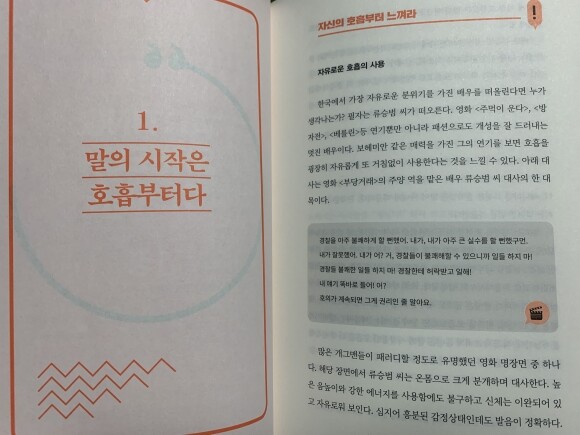 1.
말의 시작은
호흡부터다
자신의 호흡부터 느껴라
!
자유로운 호흡의 사용
한국에서 가장 자유로운 분위기를 가진 배우를 떠올린다면 누가
생각나는가? 필자는 류승범 씨가 떠오른다. 영화 <주먹이 운다>, <방
자전>, <베를린>등 연기뿐만 아니라 패션으로도 개성을 잘 드러내는
멋진 배우이다. 보헤미안 같은 매력을 가진 그의 연기를 보면 호흡을
굉장히 자유롭게 또 거침없이 사용한다는 것을 느낄 수 있다. 아래 대
사는 영화 <부당거래>의 주양 역을 맡은 배우 류승범 씨 대사의 한 대
목이다.
경찰을 아주 불쾌하게 할 뻔했어. 내가, 내가 아주 큰 실수를 할 뻔했구먼.
내가 잘못했어. 내가 어? 거, 경찰들이 불쾌해할 수 있으니까 일들 하지 마!
경찰들 불쾌한 일들 하지 마! 경찰한테 허락받고 일해!
내 얘기 똑바로 들어! 어?
호의가 계속되면 그게 권리인 줄 알아요.
많은 개그맨들이 패러디할 정도로 유명했던 영화 명장면 중 하나
다. 해당 장면에서 류승범 씨는 온몸으로 크게 분개하며 대사한다. 높
은 음높이와 강한 에너지를 사용함에도 불구하고 신체는 이완되어 있
고 자유로워 보인다. 심지어 흥분된 감정상태인데도 발음이 정확하다.